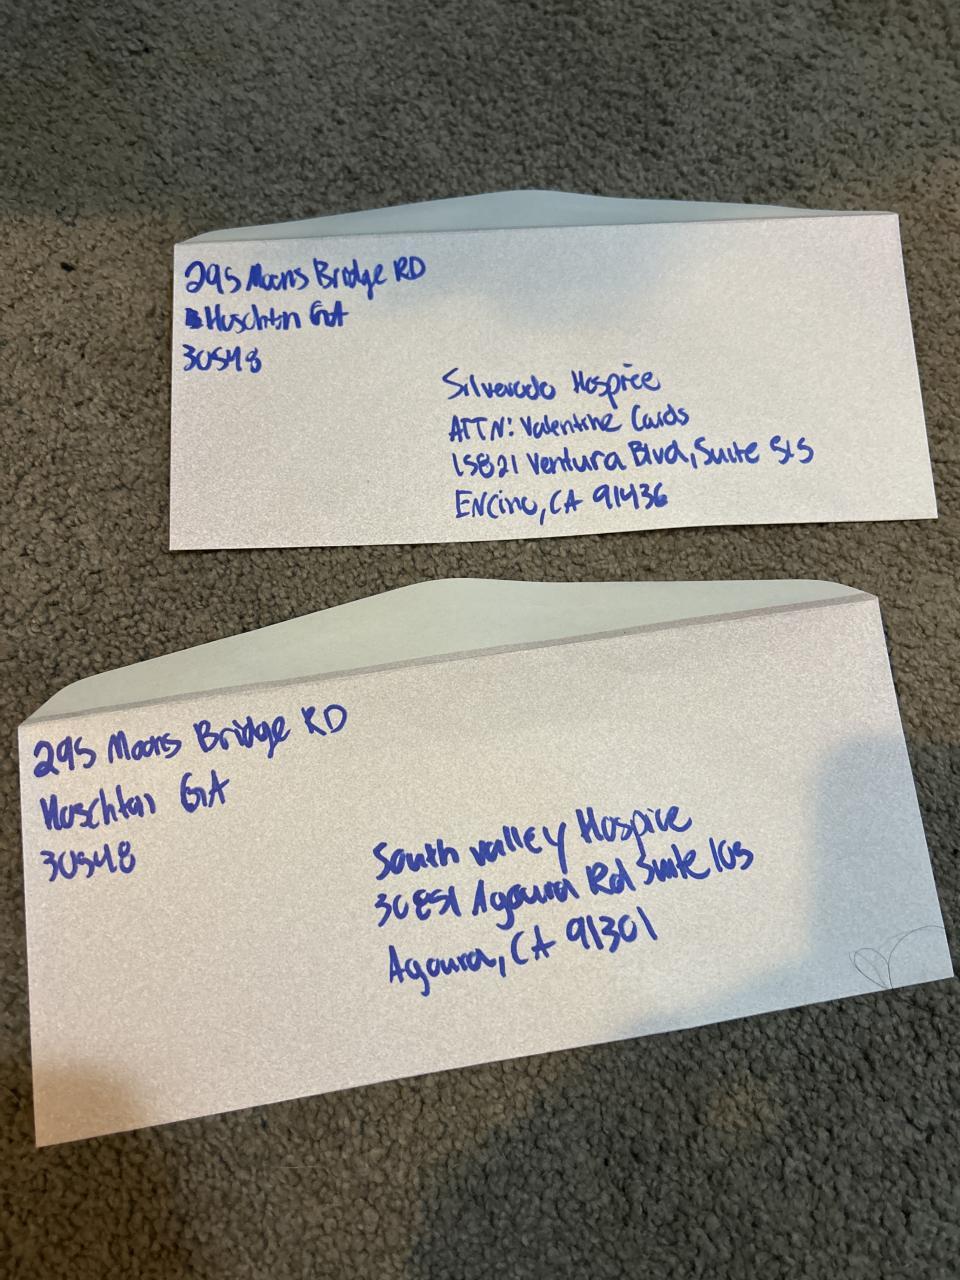 295 Moons Bridge RD
Hoschton GA
30548
Silverado Hospice
ATTN: Valentine Cards
15821 Ventura Blvd, Suite 515
Encino, CA 91436
295 Moons Bridge RD
Hoschton GA
30548
South valley Hospice
30851 Agoura Rd Suite 103
Agoura, CA 91301